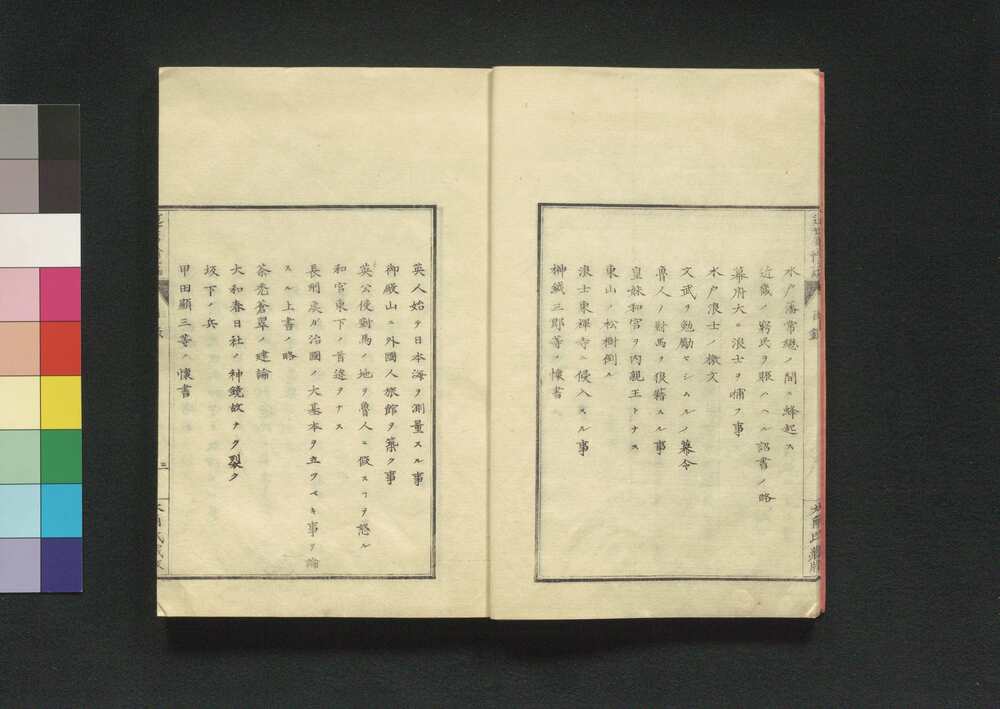 水戸藩常總ノ間ニ蜂起ス
近歳ノ窮民ヲ賑ハヘル詔書ノ略
幕府大ニ浪士ヲ捕フ事
水戸浪士ノ檄文
文武ヲ勉勵セシムルノ幕令
魯人ノ対馬ヲ狼藉スル事
皇妹和宮ヲ内親王トナス
東山ノ松樹倒ル
浪士東禪寺ニ侵入スル事
榊鉞三郎等ノ懐書
英人始テ日本海ヲ測量スル事
御殿山ニ外國人旅館ヲ築ク事
英公使對馬ノ地ヲ魯人ニ假スヿヲ怒ル
和宮東下ノ首途ヲナス
長州矦ガ治國ノ大基本ヲ立ツベキ事ヲ論
スル上書ノ略
茶禿蒼翠ノ建論
大和春日社ノ神鏡故ナク裂ク
坂下ノ兵
甲田顯三等ノ懐書
二